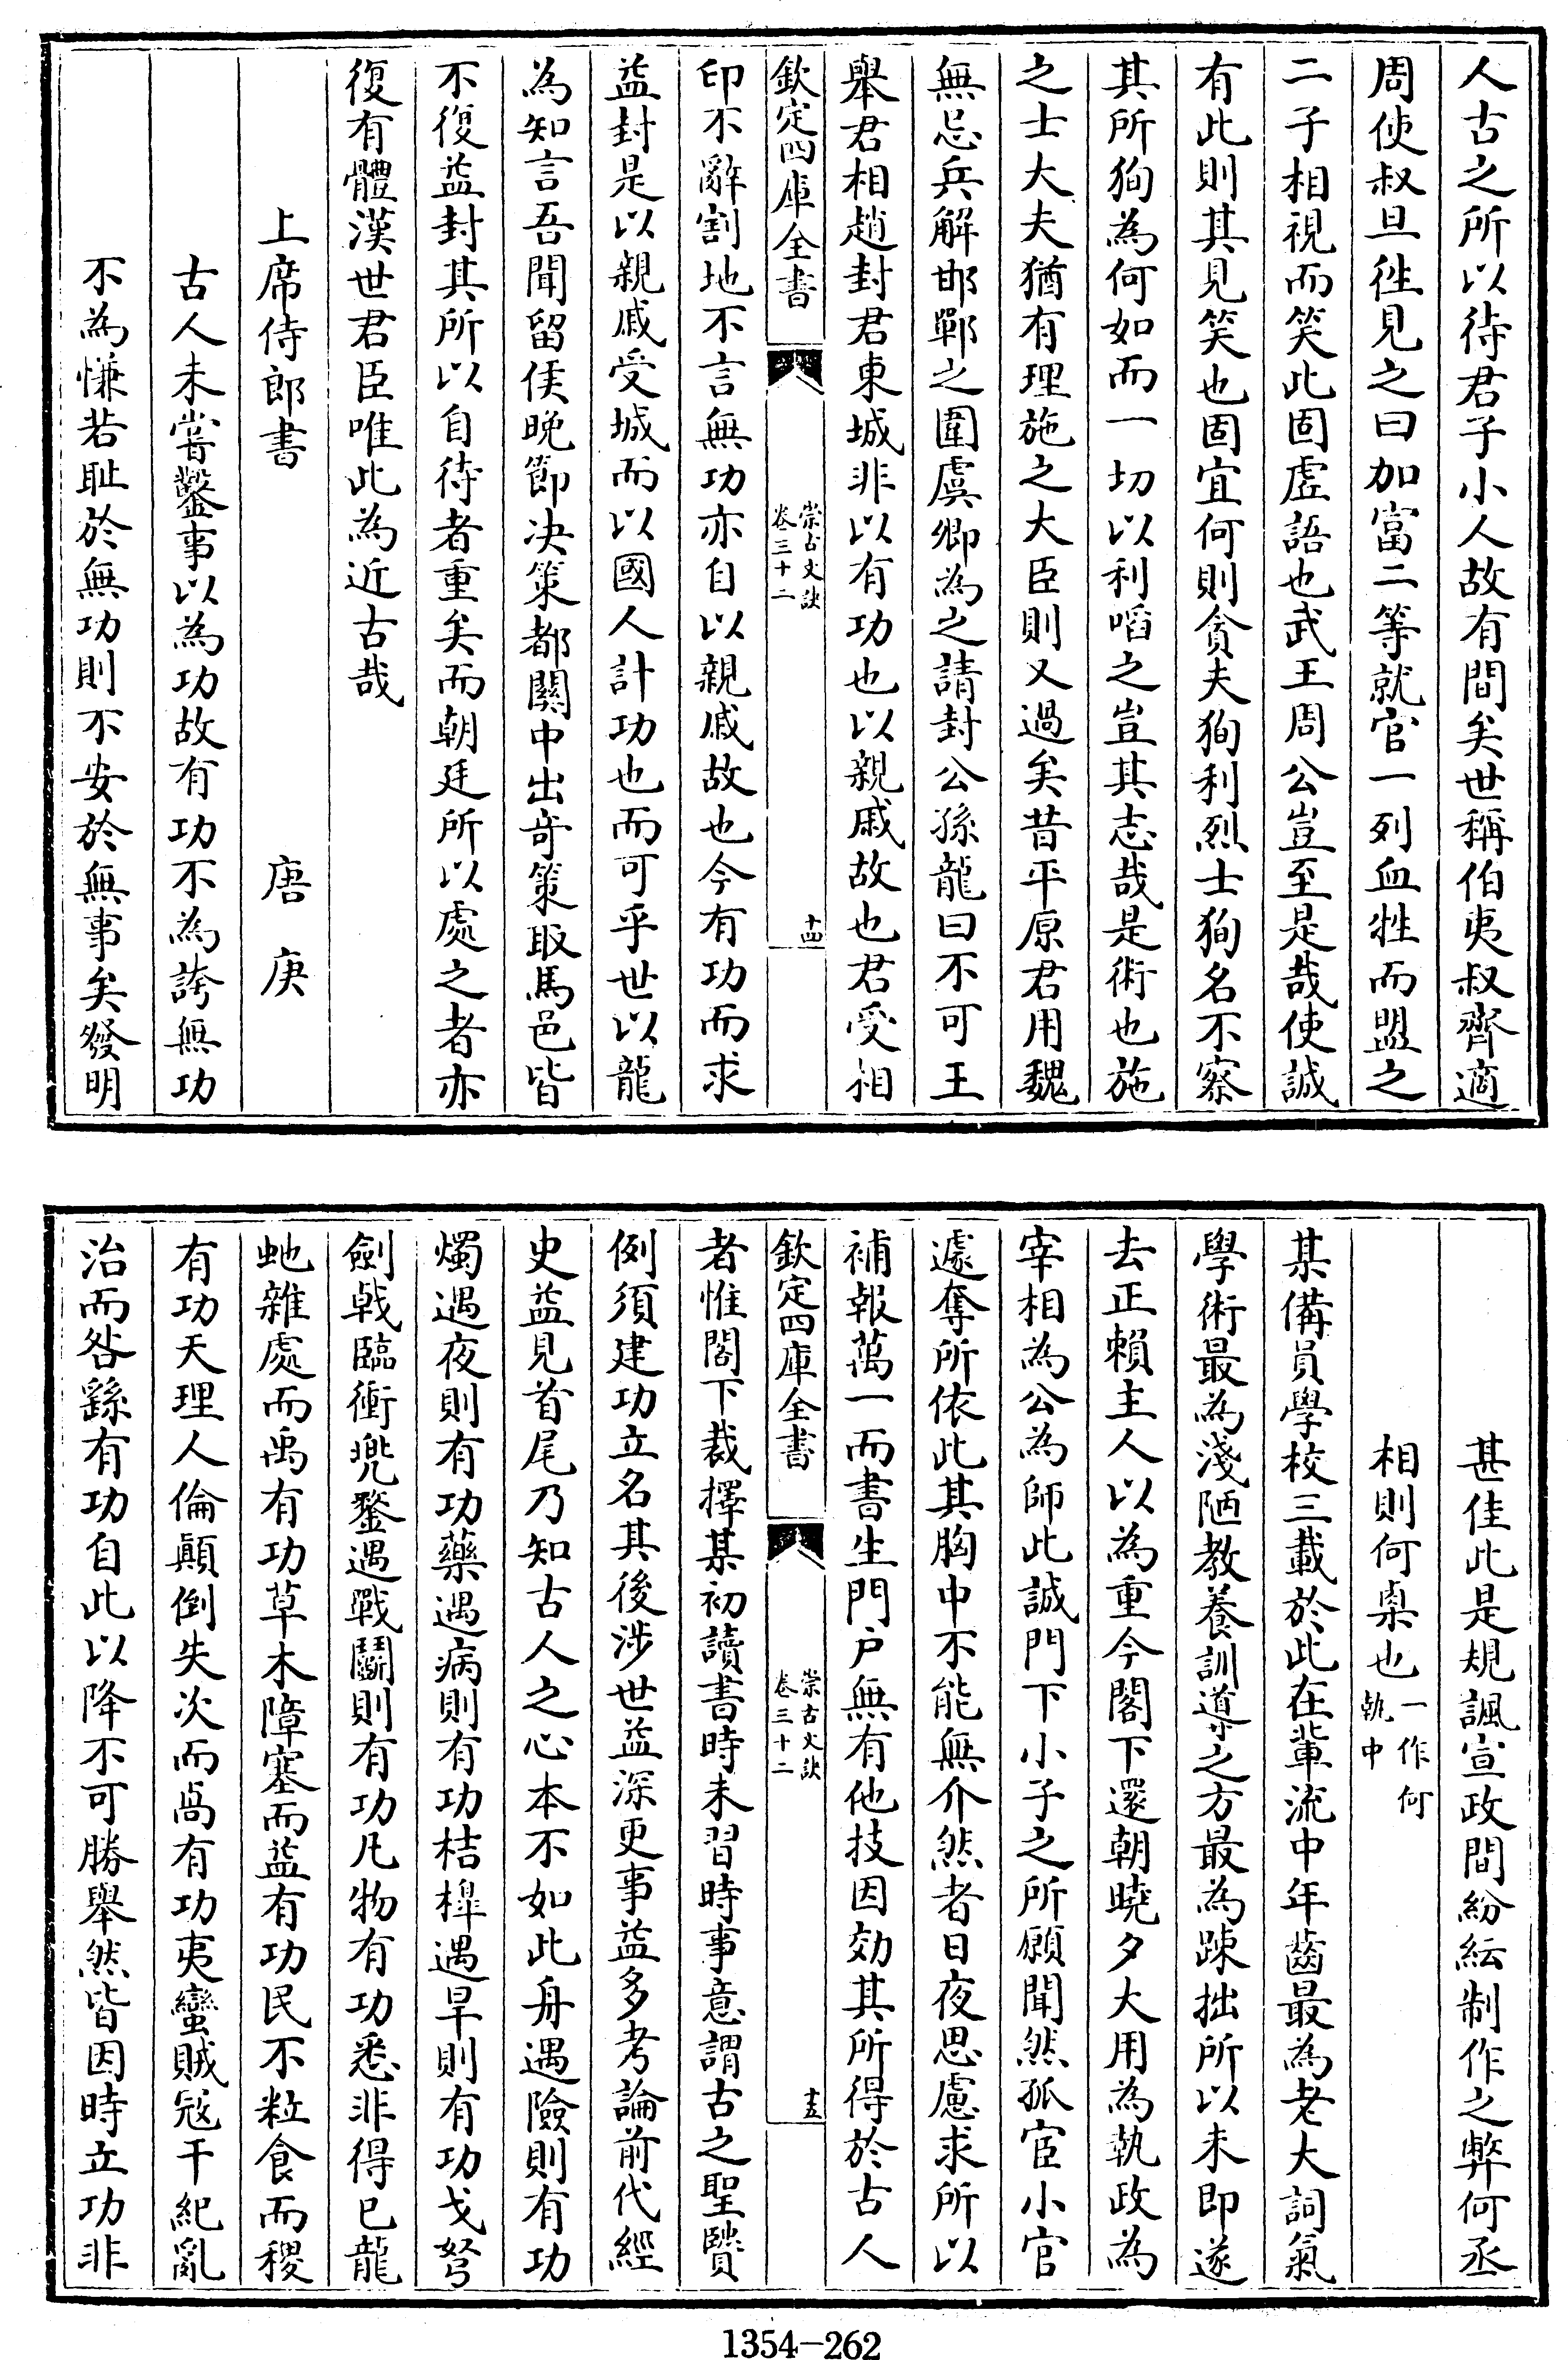 人古之所以待君子小人故有間矣世稱伯夷叔齊適
周使叔旦往見之曰加富二等就官一列血牲而盟之
二子相視而笑此固虛語也武王周公豈至是哉使誠
有此則其見笑也固宜何則貪夫狥利烈士狥名不察
其所狥為何如而一切以利啗之豈其志哉是術也施
之士大夫猶有理施之大臣則又過矣昔平原君用魏
無忌兵解邯鄲之圍虞卿為之請封公孫龍曰不可王
舉君相趙封君東城非以有功也以親戚故也君受相
欽定四庫全書
崇古文訣
卷三十二
十四
印不辭割地不言無功亦自以親戚故也今有功而求
益封是以親戚受城而以國人計功也而可乎世以龍
為知言吾聞留侯晚節决策都關中出奇策取馬邑皆
不復益封其所以自待者重矣而朝廷所以處之者亦
復有體漢世君臣唯此為近古哉
上席侍郎書 唐庚
古人未嘗鑿事以為功故有功不為誇無功
不為慊若恥於無功則不安於無事矣發明
甚佳此是規諷宣政間紛紜制作之弊何丞
相則何㮚也一作何
執中
某備員學校三載於此在輩流中年齒最為老大詞氣
學術最為淺陋教養訓導之方最為踈拙所以未即遂
去正賴主人以為重今閣下還朝曉夕大用為執政為
宰相為公為師此誠門下小子之所願聞然孤宦小官
遽奪所依此其胸中不能無介然者日夜思慮求所以
補報萬一而書生門户無有他技因効其所得於古人
欽定四庫全書
崇古文訣
卷三十二
十五
者惟閣下裁擇某初讀書時未習時事意謂古之聖賢
例須建功立名其後涉世益深更事益多考論前代經
史益見首尾乃知古人之心本不如此舟遇險則有功
燭遇夜則有功藥遇病則有功桔槔遇旱則有功戈弩
劍戟臨衝兜鍪遇戰鬭則有功凡物有功悉非得已龍
虵雜處而禹有功草木障塞而益有功民不粒食而稷
有功天理人倫顚倒失次而卨有功夷蠻賊冦干紀亂
治而咎繇有功自此以降不可勝舉然皆因時立功非
1354-262